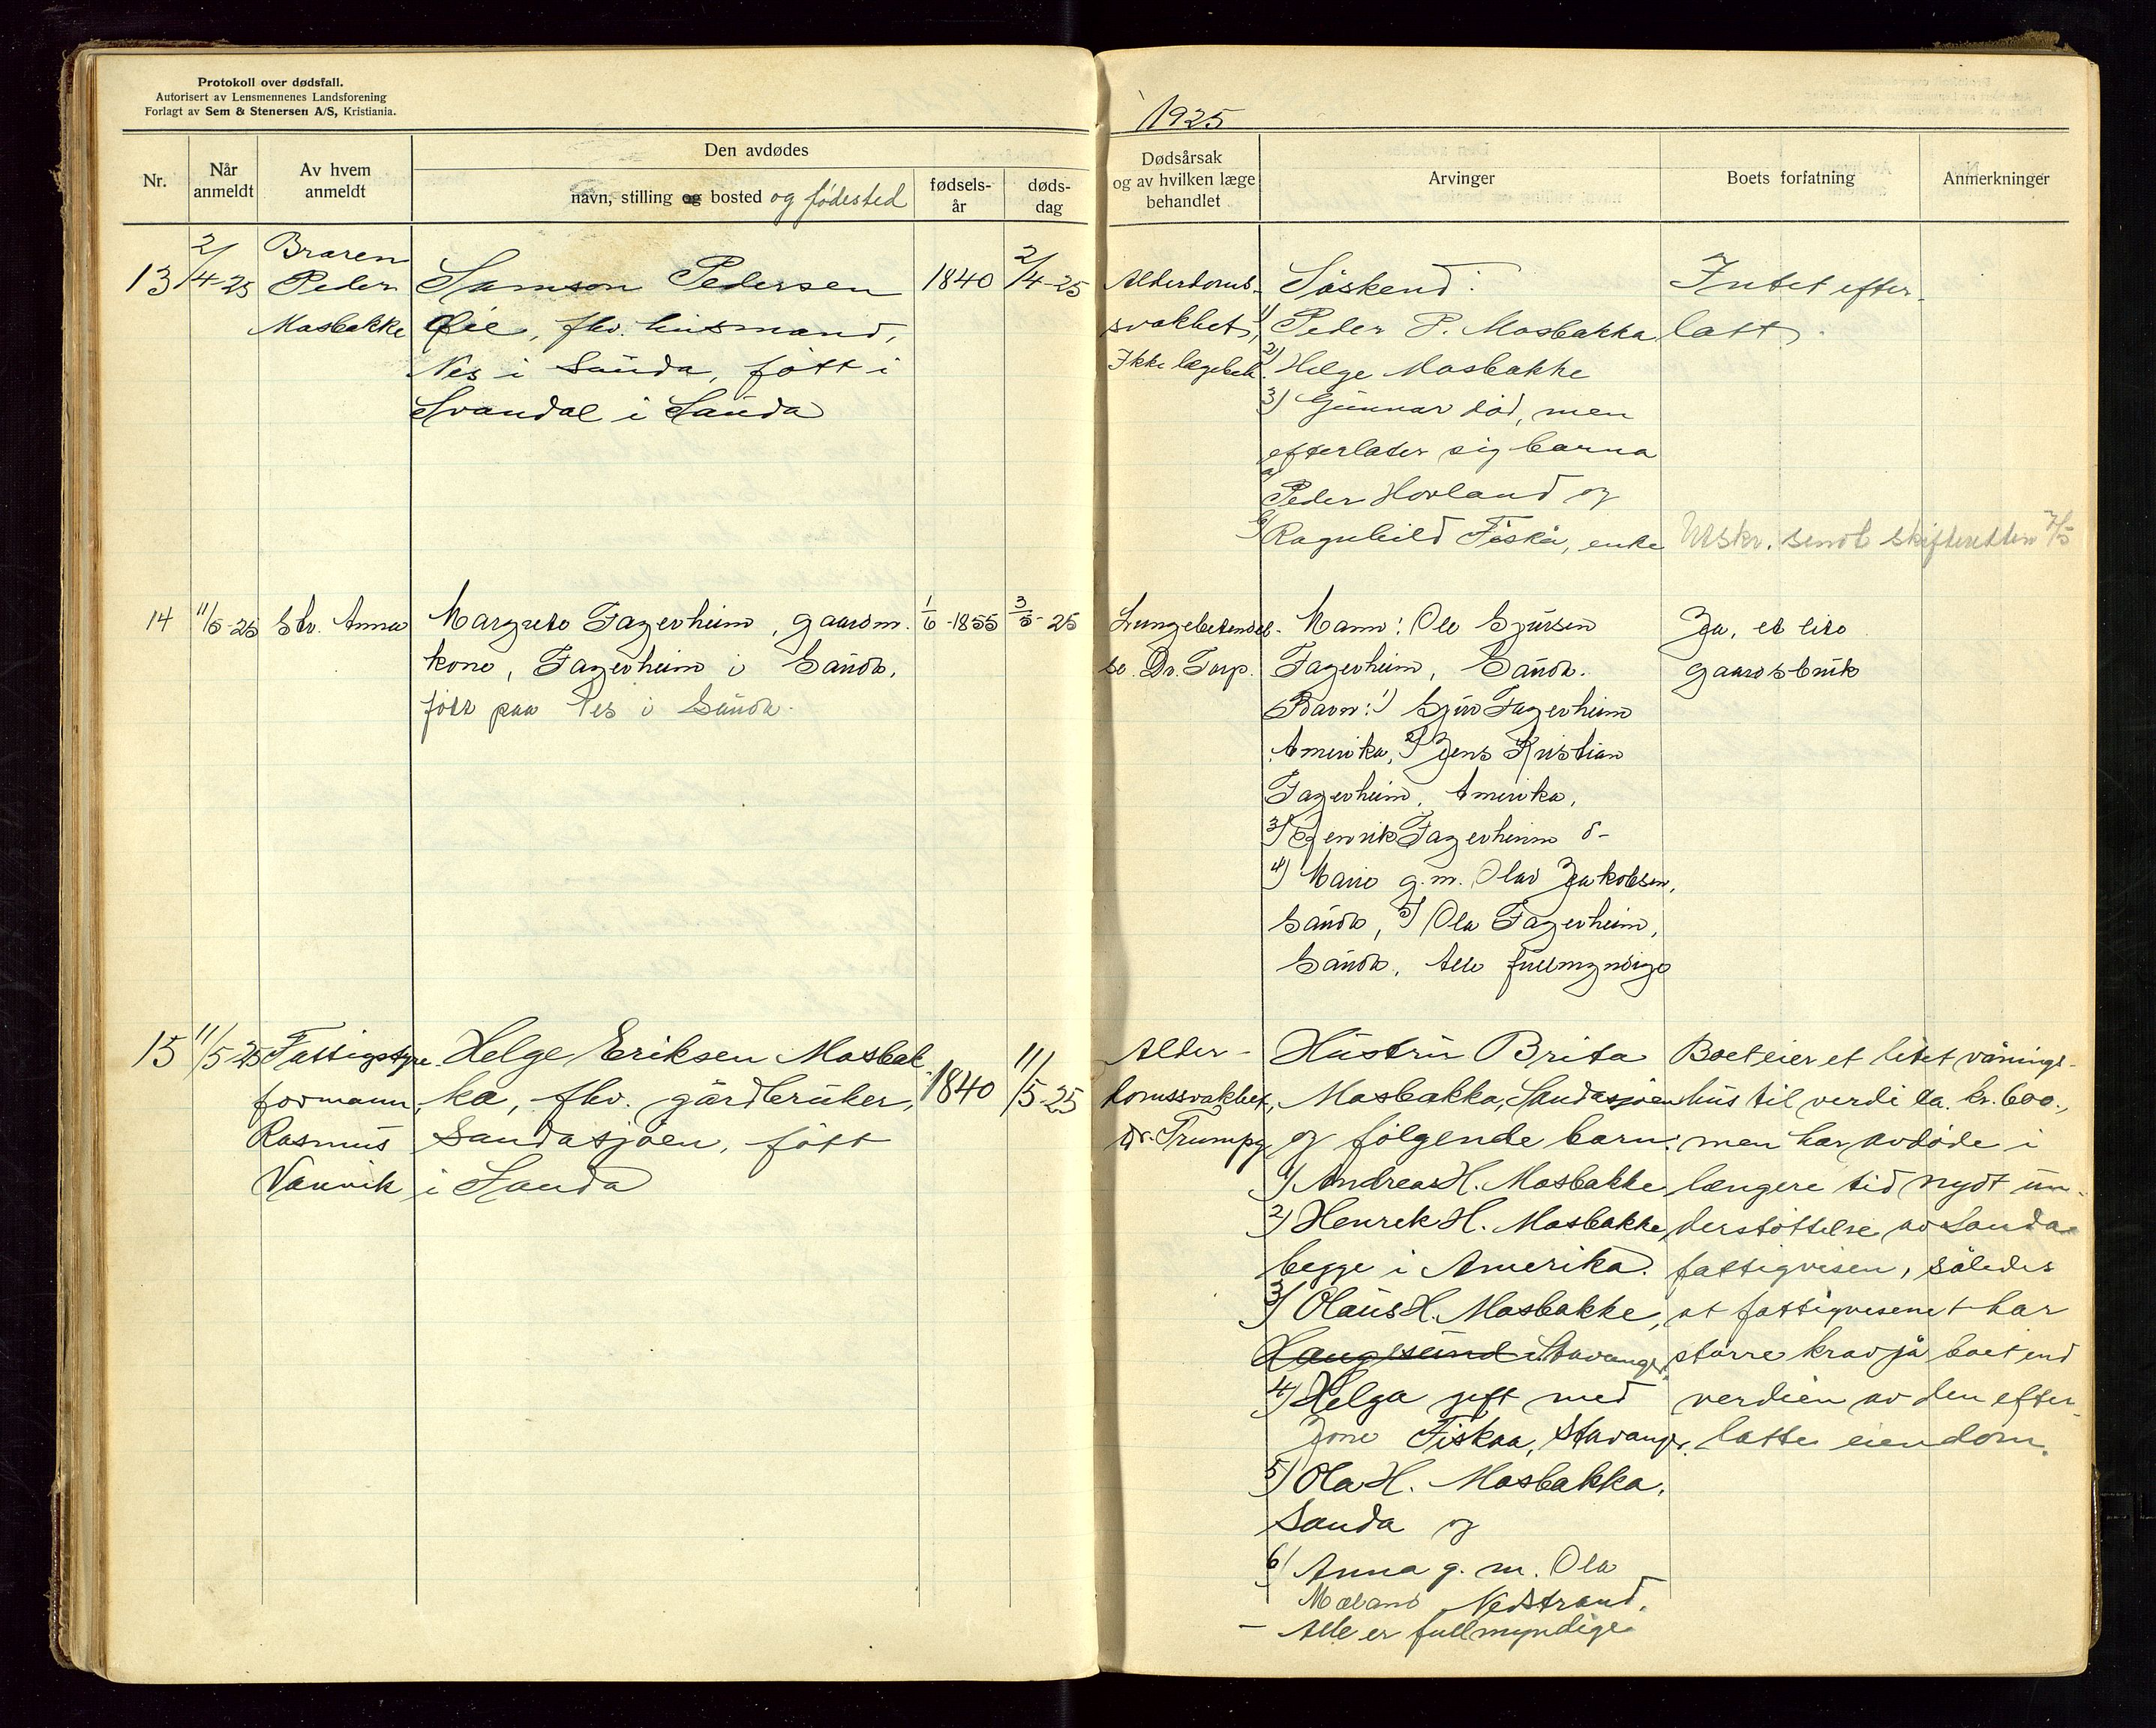 Protokoll over dødsfall.
Autorisert av Lensmennenes Landsforening
Forlagt av Sem & Stenersen A/S, Kristiania.
1925
Nr.
Når anmeldt
Av hvem anmeldt
Den avdødes
navn, stilling og bosted og fødested
fødsels-år
døds-dag
Dødsårsak og av hvilken læge behandlet
Arvinger
Boets forfatning
Anmerkninger
13
2/4-25
Broren
Peder
Mosbakke
Samson Pedersen
Øie, fhv. husmand,
Nes i Sauda, født i
Svandal i Sauda
1840
2/4-25
Alderdoms-
svakhet,
Ikke lægebeh.
Søskend:
1) Peder P. Mosbakka
2) Helge Mosbakke
3) Gunnar død, men
efterlater sig barna
a) Peder Hovland og
b) Ragnhild Fiskå, enke
Intet efter-
latt.
Utskr. sendt skifteretten 7/5
14
11/5-25
Str. Anna
Margrete Fagerheim, gaardm.
kone, Fagerheim i Sauda.
født paa Nes i Sauda.
1/6-1855
3/5-25
Lungebetendel-
se. Dr. Torp.
Mann: Ole Sjursen
Fagerheim, Sauda.
Barn: 1) Sjur Fagerheim
Amerika, 2) Jens Kristian
Fagerheim, Amerika,
3) Henrik Fagerheim d-
4) Marie g.m. Olav Jakobsen,
Sauda, 5) Ola Fagerheim,
Sauda. Alle fullmyndige
Ja, et lite
gaardsbruk
15
11/5-25
Fattigstyre-
formann,
Rasmus
Vanvik
Helge Eriksen Mosbak-
ka, fhv. gårdbruker,
Saudasjøen, født
i Sauda
1840
11/5-25
Alder-
domssvakhet,
dr. Trumpy
Hustru Brita
Mosbakka, Saudasjøen
og følgende barn:
1) Andreas H. Mosbakke
2) Henrek H. Mosbakke,
begge i Amerika.
3) Olaus H. Mosbakke,
Haugesund Stavanger.
4) Helga gift med
Jone Fiskaa, Stavanger.
5) Ola H. Mosbakka,
Sauda og
6) Anna g. m. Ola
Mæland Nedstrand.
- Alle er fullmyndige
Boet eier et litet vånings-
hus til verdi ca. kr. 600.,
men har avdøde i
længere tid nydt un-
derstøttelse av Sauda
fattigvesen, således
at fattigvesenet har
større krav på boet end
verdien av den efter-
latte eiendom.